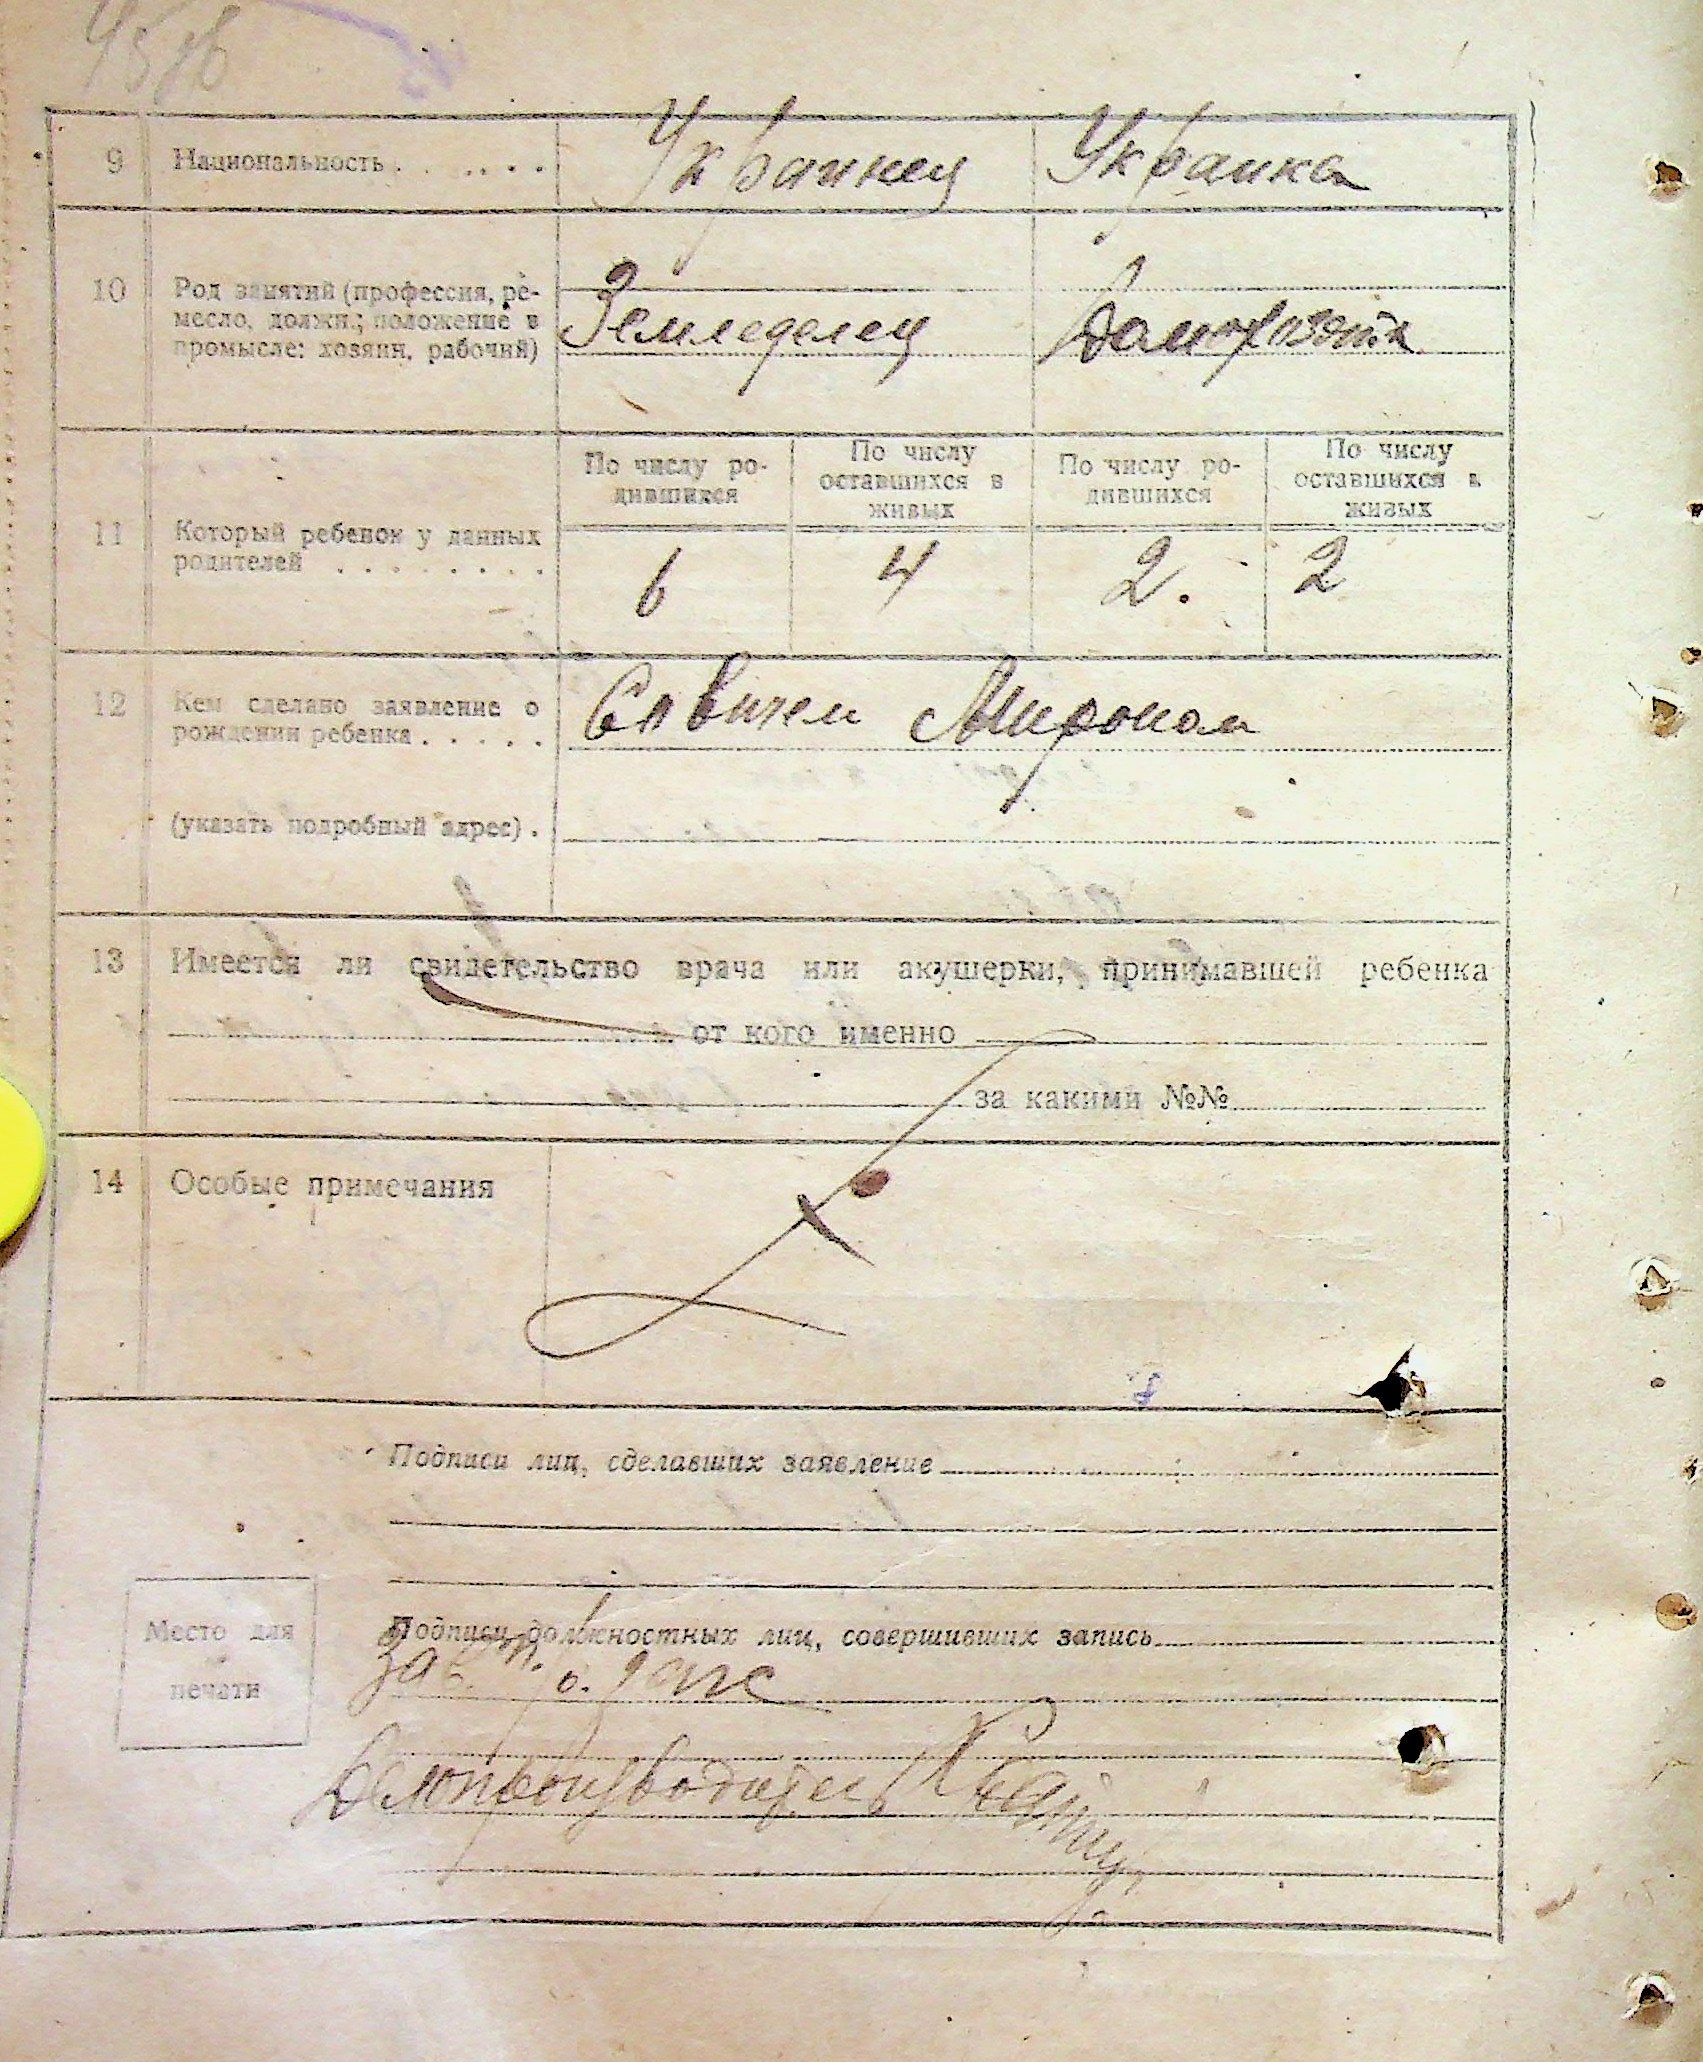 45 об
9 Национальность . . . . . . Украинец Украинка
10 Род занятий (профессия, ре-
месло, должн.; положение в
промысле: хозяин, рабочий)
Земледелец Домохозяйка
По числу ро-
дившихся
По числу
оставшихся в
живых
По числу ро-
дившихся
По числу
оставшихся в
живых
11 Который ребенок у данных
родителей . . . . . . . .
6 4 2. 2
12 Кем сделано заявление о
рождении ребенка . . . . .
Савичем Мироном
(указать подробный адрес) .
13 Имеется ли свидетельство врача или акушерки, принимавшей ребенка
от кого именно
за какими №№
14 Особые примечания
Подписи лиц, сделавших заявление
Место для
печати
Подписи должностных лиц, совершивших запись
Зав.
Делопроизводитель